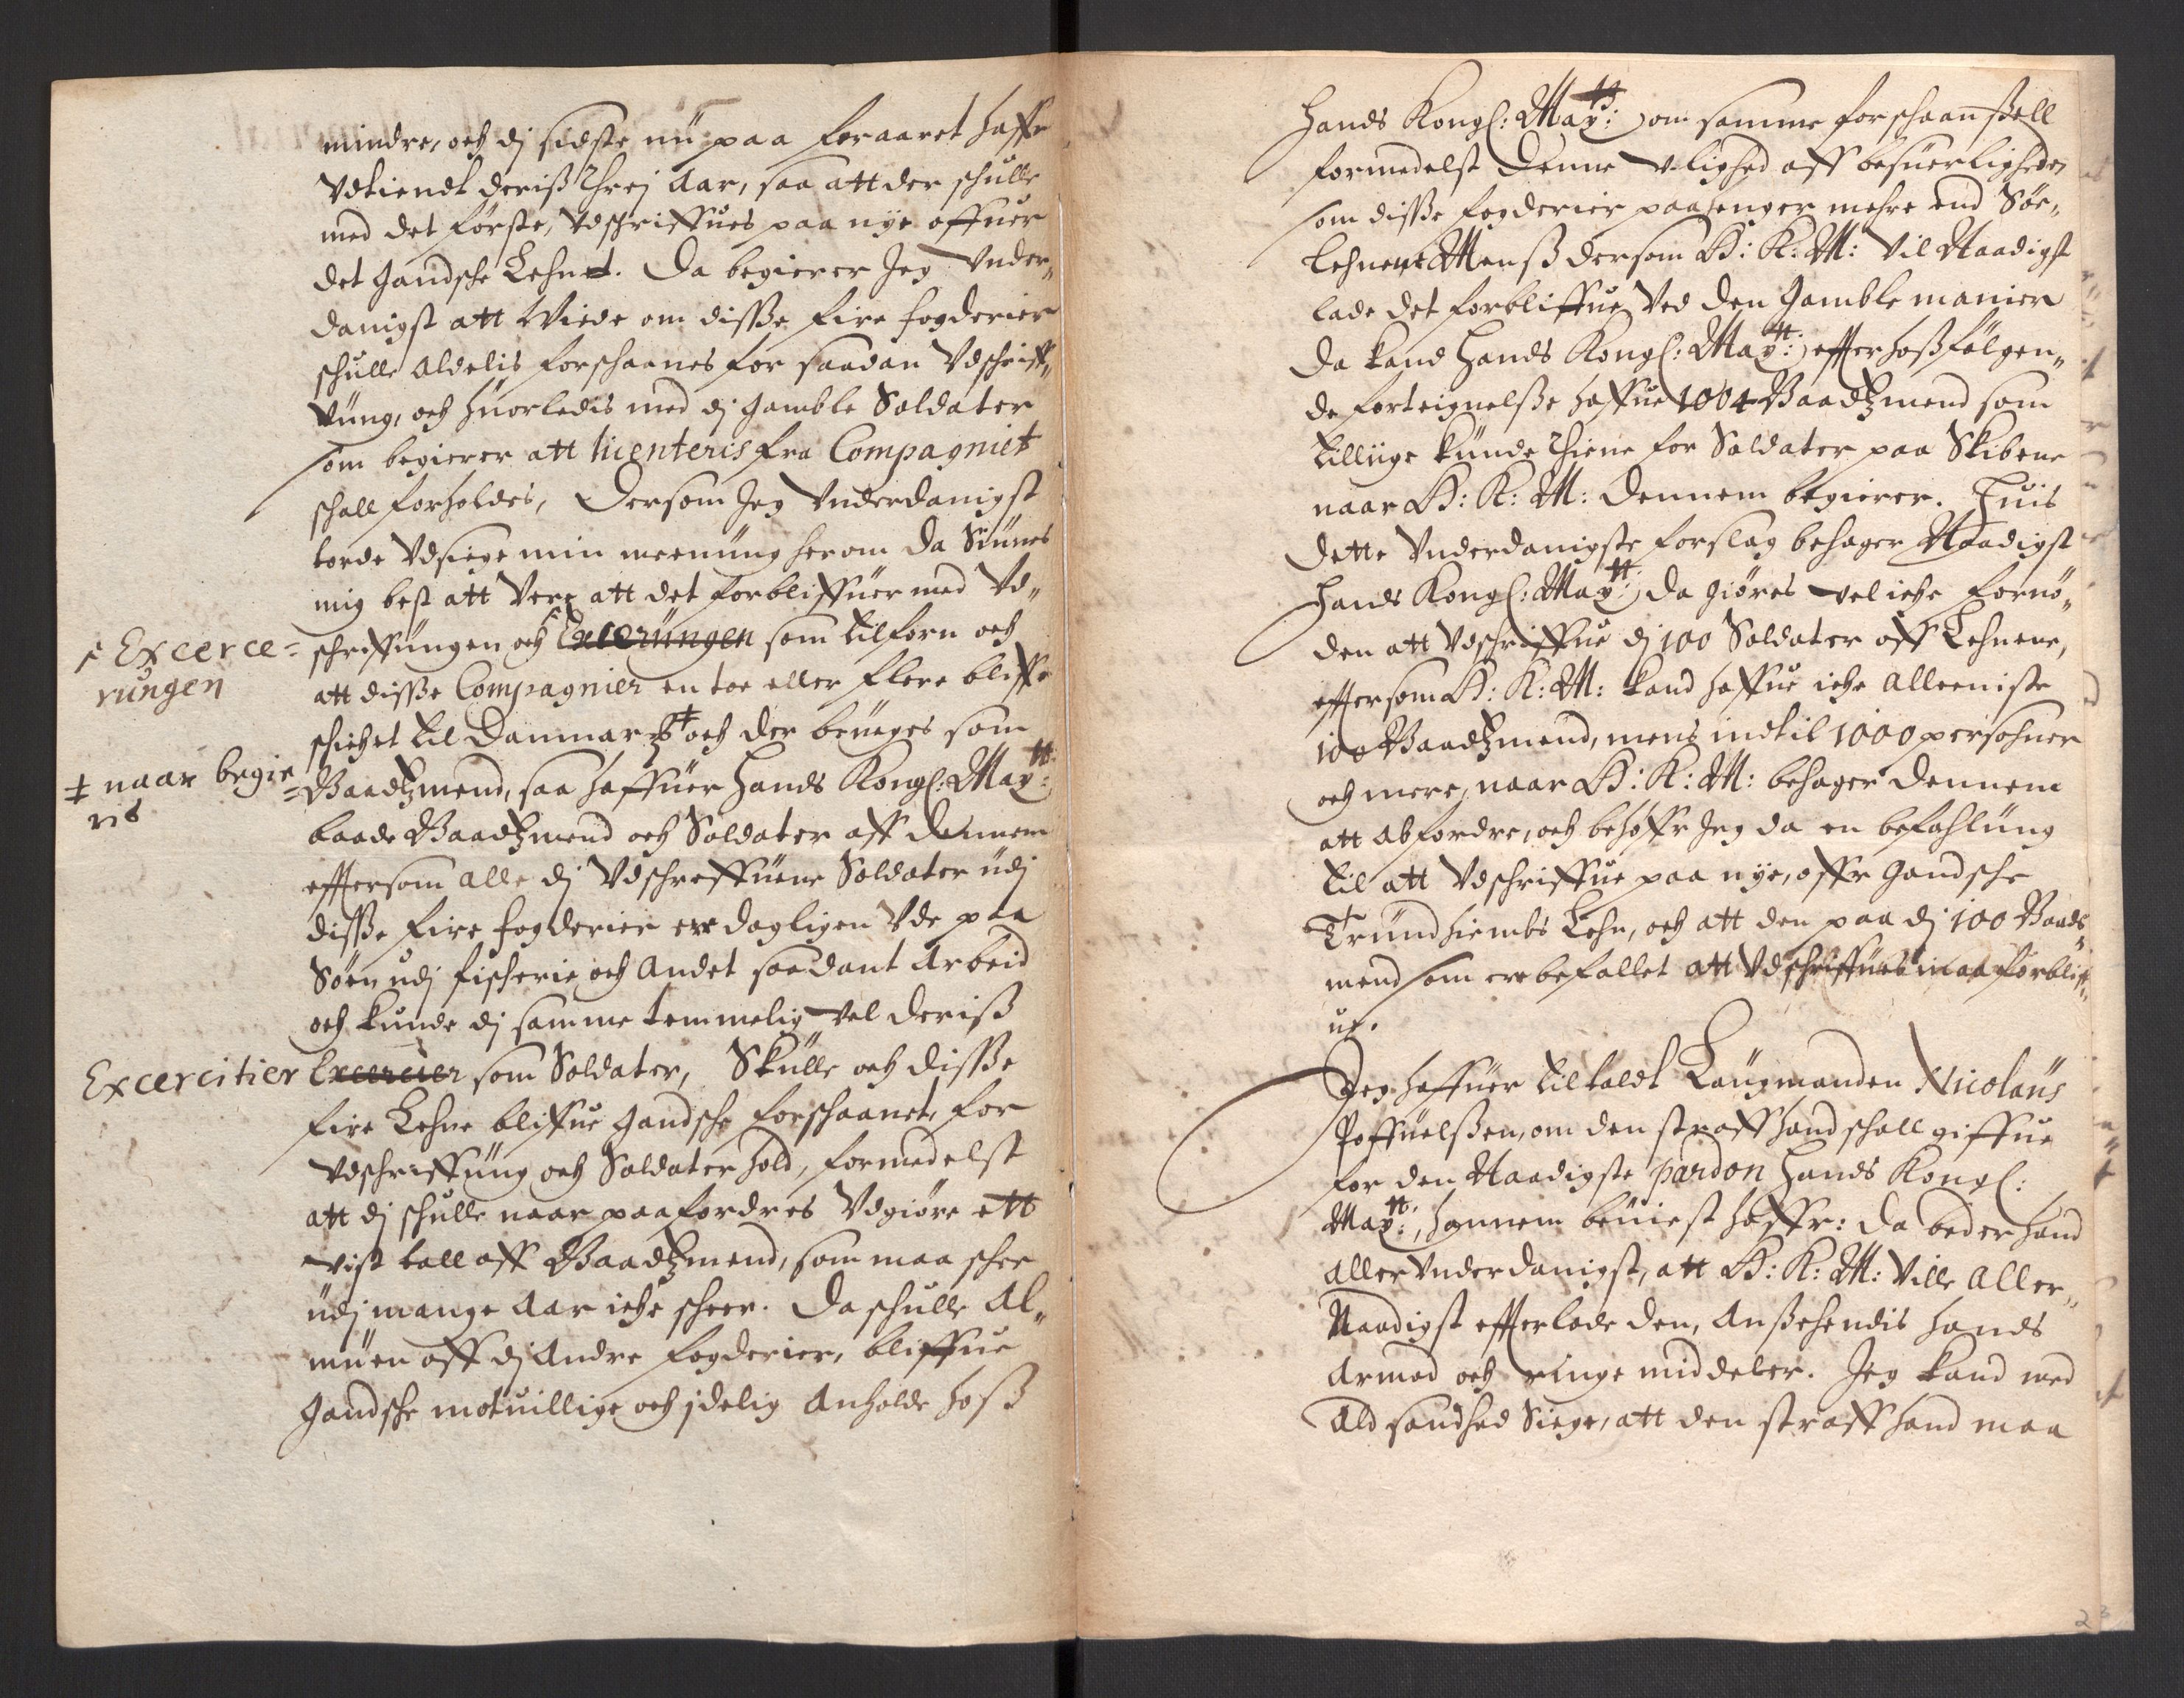 mindre, och dj sidste nü paa foraaret haffr
Vdtiendt deriß Threj Aar, saa att der schulle
med det første, Vdschriffues paa nye offuer
det gandsche Lehnet. Da begierer Jeg Vnder„
danigst att Wiide om disße fire fogderier
schulle Aldelis forschaanes for saadan Vdschriff„
tüng, och huorledis med dj gamble Soldater
som begierer att licenteris fra Compagniet
schall forholdes, Dersom Jeg Vnderdanigst
torde Vdsiege min meenüng herom da Siünes
mig best att Vere att det forbliffuer med Vd„
schriffüngen och Excerüngen som tilforn och
att disße Compagnier en toe eller flere bliffr
schichet til Danmarch ‡ och der brüges som
Baadtzmend, saa haffuer Hands Kongl: Maytt:
baade Baadtzmend och Soldater aff dennem
effttersom alle dj Vdschreffüene Soldater üdj
disße fire fogderier ere dagligen Vde paa
Søen udj fischerie och Andet saadant Arbeid
och kunde dj samme temmelig vel deriß
Excercier som Soldater, Skülle och disße
fire Lehne bliffue gandsche forschaanet, for
Vdschriffüng och Soldater hold, formedelst
att dj schulle naar paafordres Vdgiøre ett
vist tall aff Baadtzmend, som maa schee
üdj mange Aar iche scheer. Da schulle Al„
müen aff dj Andre fogderier, bliffue
gandsche motuillige och jdelig Anholde hoß
ꝩ Excerce=
rüngen
‡ naar begie
=ris
Excercitier
Hands Kongl: Maytt: om samme forschaanßell
formedelst denne Vlighed aff besuerligheder
som disße fogderier paahenger mehre end Søe„
Lehnene Menß dersom E: K: M: Vil Naadigst
lade det forbliffue Ved den gamble manier
Da kand Hands Kongl: Maytt: effter hoßfølgen„
de forteignelße haffue 1004 Baadtzmend som
tillige künde Thiene for Soldater paa Skibene
naar E: K: M: dennem begierer. Huis
dette Vnderdanigste forslag behager Naadigst
Hands Kongl: Maytt: da giøres vel iche fornø„
den att Vdschriffue dj 100 Soldater aff Lehnene,
efftersom E: K: M: kand haffue iche alleeniste
100 Baadtzmend, mens indtil 1000 persohner
och mere, naar E: K: M: behager dennem
att Abfordre, och behøffr Jeg da en befahlüng
til att Vdschriffue paa nye, offr gandsche
Tründhiembs Lehn, och att den paa dj 100 Baads„
mend som ere befallet att Vdschriffues maa forblif„
ue.
Jeg haffuer tiltaldt Laugmanden Nicolaus
Poffuelßen, om den straff hand schall giffue
for den Naadigste pardon Hands Kongl:
Maytt:, hannem beuiest haffr: da beder hand
aller Vnderdanigst, att E: K: M: Ville Aller„
Naadigst effterlade den, Anßehendis hands
Armod och ringe middeler. Jeg kand med
Ald sandhed Siege, att den straff hand maa
2